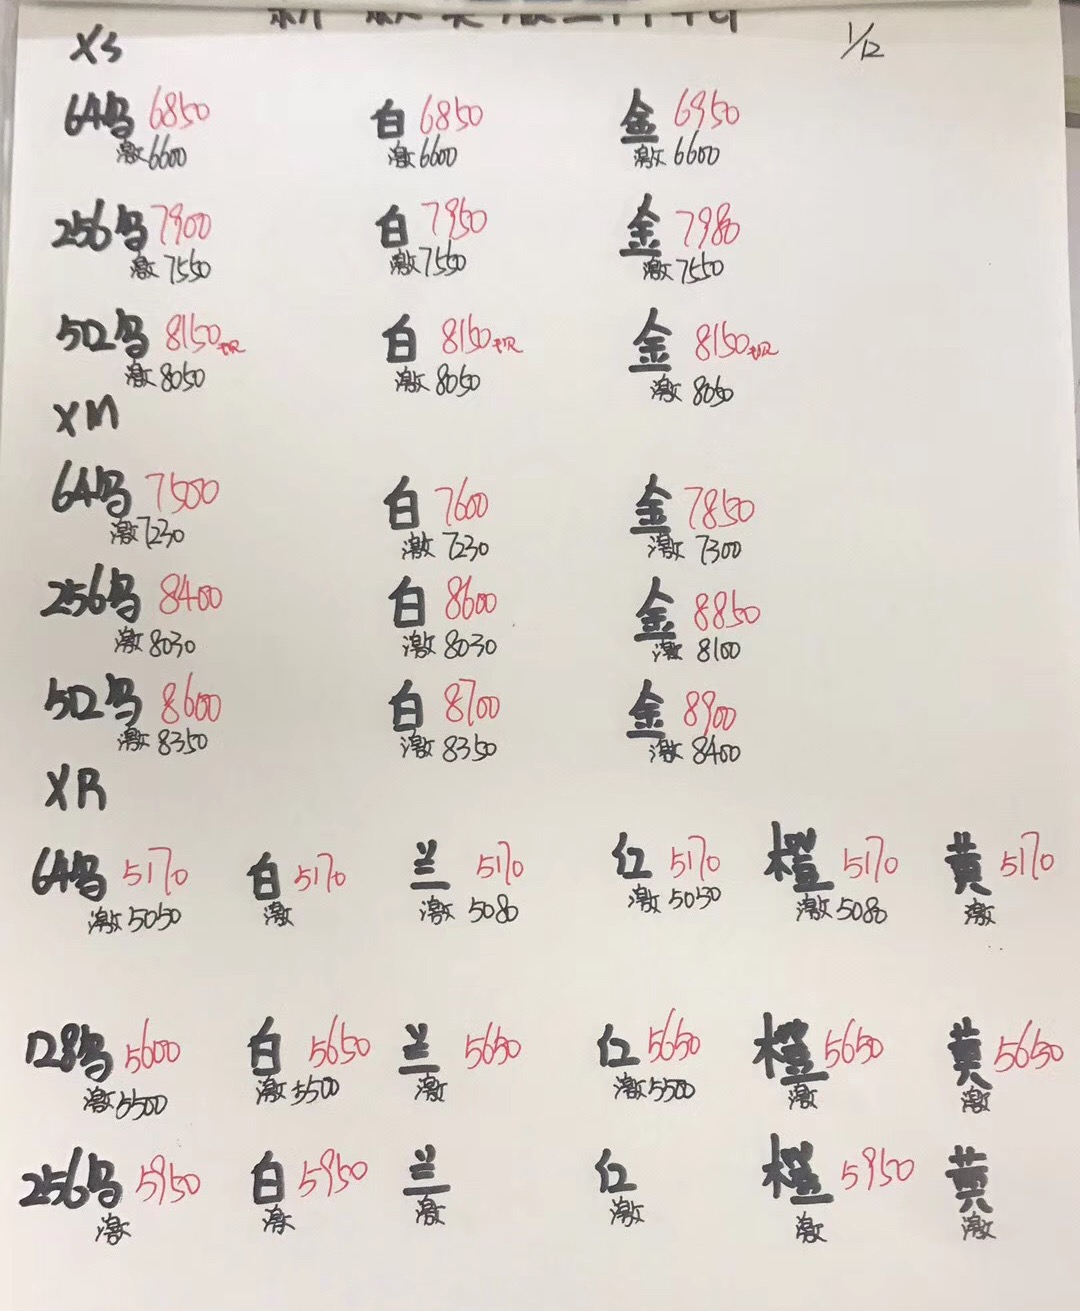 XS 1/12
64乌 6850 白 6850 金 6950
激6600 激6600 激6600
256乌 7900 白 7950 金 7980
激7550 激7550 激7550
512乌 8150 白 8150 金 8150
激8050 激8050 激8050
XM
64乌 7500 白 7600 金 7850
激7230 激7230 激7300
256乌 8400 白 8600 金 8850
激8030 激8030 激8100
512乌 8600 白 8700 金 8900
激8350 激8350 激8400
XR
64乌 5170 白 5170 兰 5170 红 5170 橙 5170 黄 5170
激5050 激 激5080 激5050 激5080 激
128乌 5600 白 5650 兰 5650 红 5650 橙 5650 黄 5650
激5500 激5500 激 激5500 激 激
256乌 5950 白 5950 兰 红 橙 5950 黄
激 激 激 激 激 激